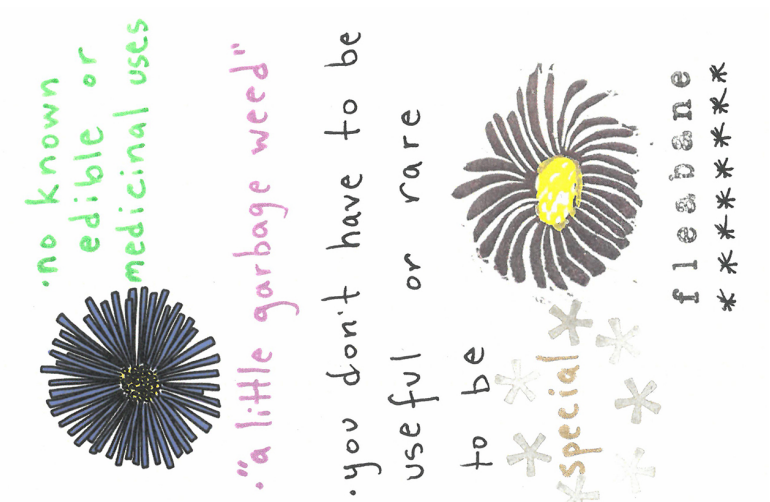 ·no known
edible or
medicinal uses
·"a little garbage weed"
·you don't have to be
useful or rare
to be
special
fleabane
********